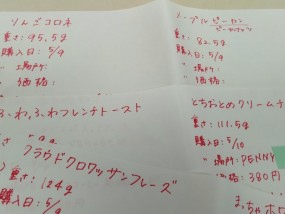 りんごコロネ
重さ: 95.5g
購入日: 5/9
〃 場所:
〃 価格:
メープルピーカン
重さ: 82.5g
購入日: 5/9
〃 場所:
〃 価格:
ふわふわフレンチトースト
重さ:
購入日: 5/9
とちおとめクリーム
重さ: 111.5g
購入日: 5/10
〃 場所: PENNY
〃 価格: 380円
クラウドクロワッサンフレーズ
重さ: 124g
購入日: 5/9
まっちゃホワ